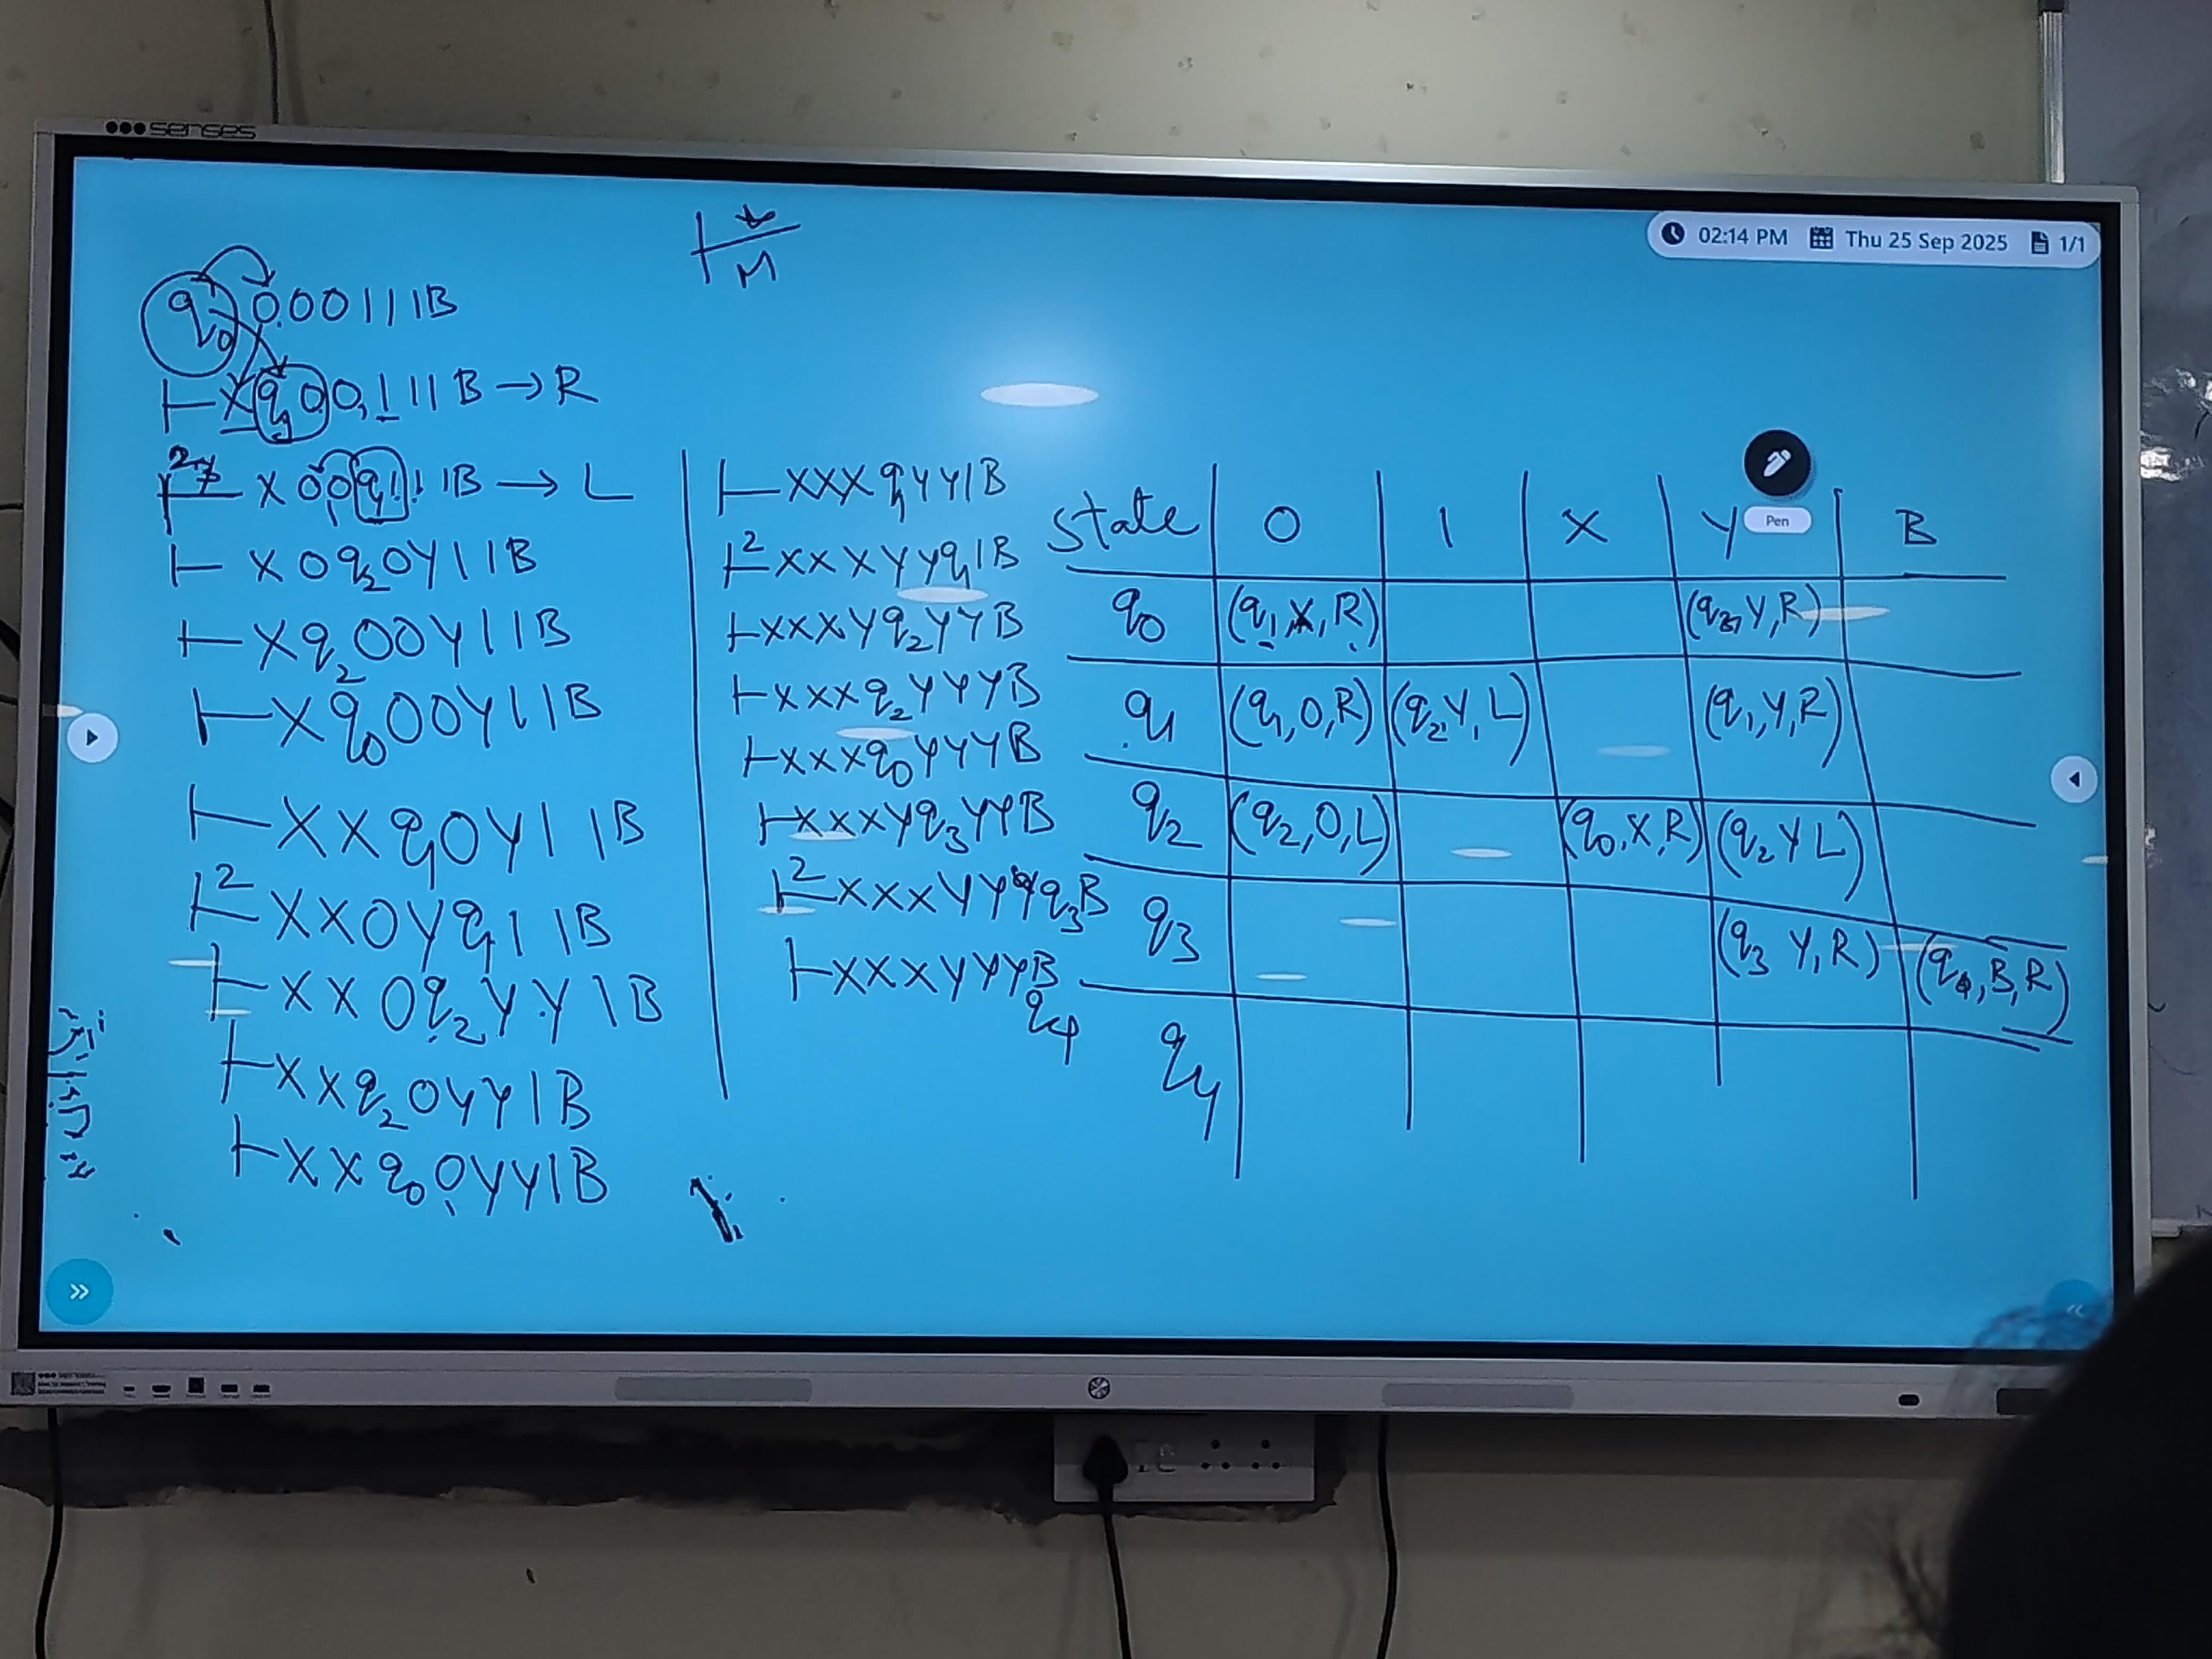 senses
02:14 PM Thu 25 Sep 2025 1/1
⊢*
M
q₀000111B
⊢Xq₁00111B → R
⊢² X00q₁111B → L
⊢ X0q₂0Y11B
⊢Xq₂00Y11B
⊢Xq₀00Y11B
⊢XXq₁0Y11B
⊢²XX0Yq₁11B
⊢XX0q₂YY1B
⊢XXq₂0YY1B
⊢XXq₀0YY1B
⊢XXXq₁YY1B
⊢²XXXYYq₁1B
⊢XXXYq₂YYB
⊢XXXq₂YYYB
⊢XXXq₀YYYB
⊢XXXYq₃YYB
⊢²XXXYYYq₃B
⊢XXXYYYB
q₄
Pen
State 0 1 X Y B
q₀ (q₁,X,R) (q₃,Y,R)
q₁ (q₁,0,R) (q₂,Y,L) (q₁,Y,R)
q₂ (q₂,0,L) (q₀,X,R) (q₂ Y L)
q₃ (q₃ Y,R) (q₄,B,R)
q₄